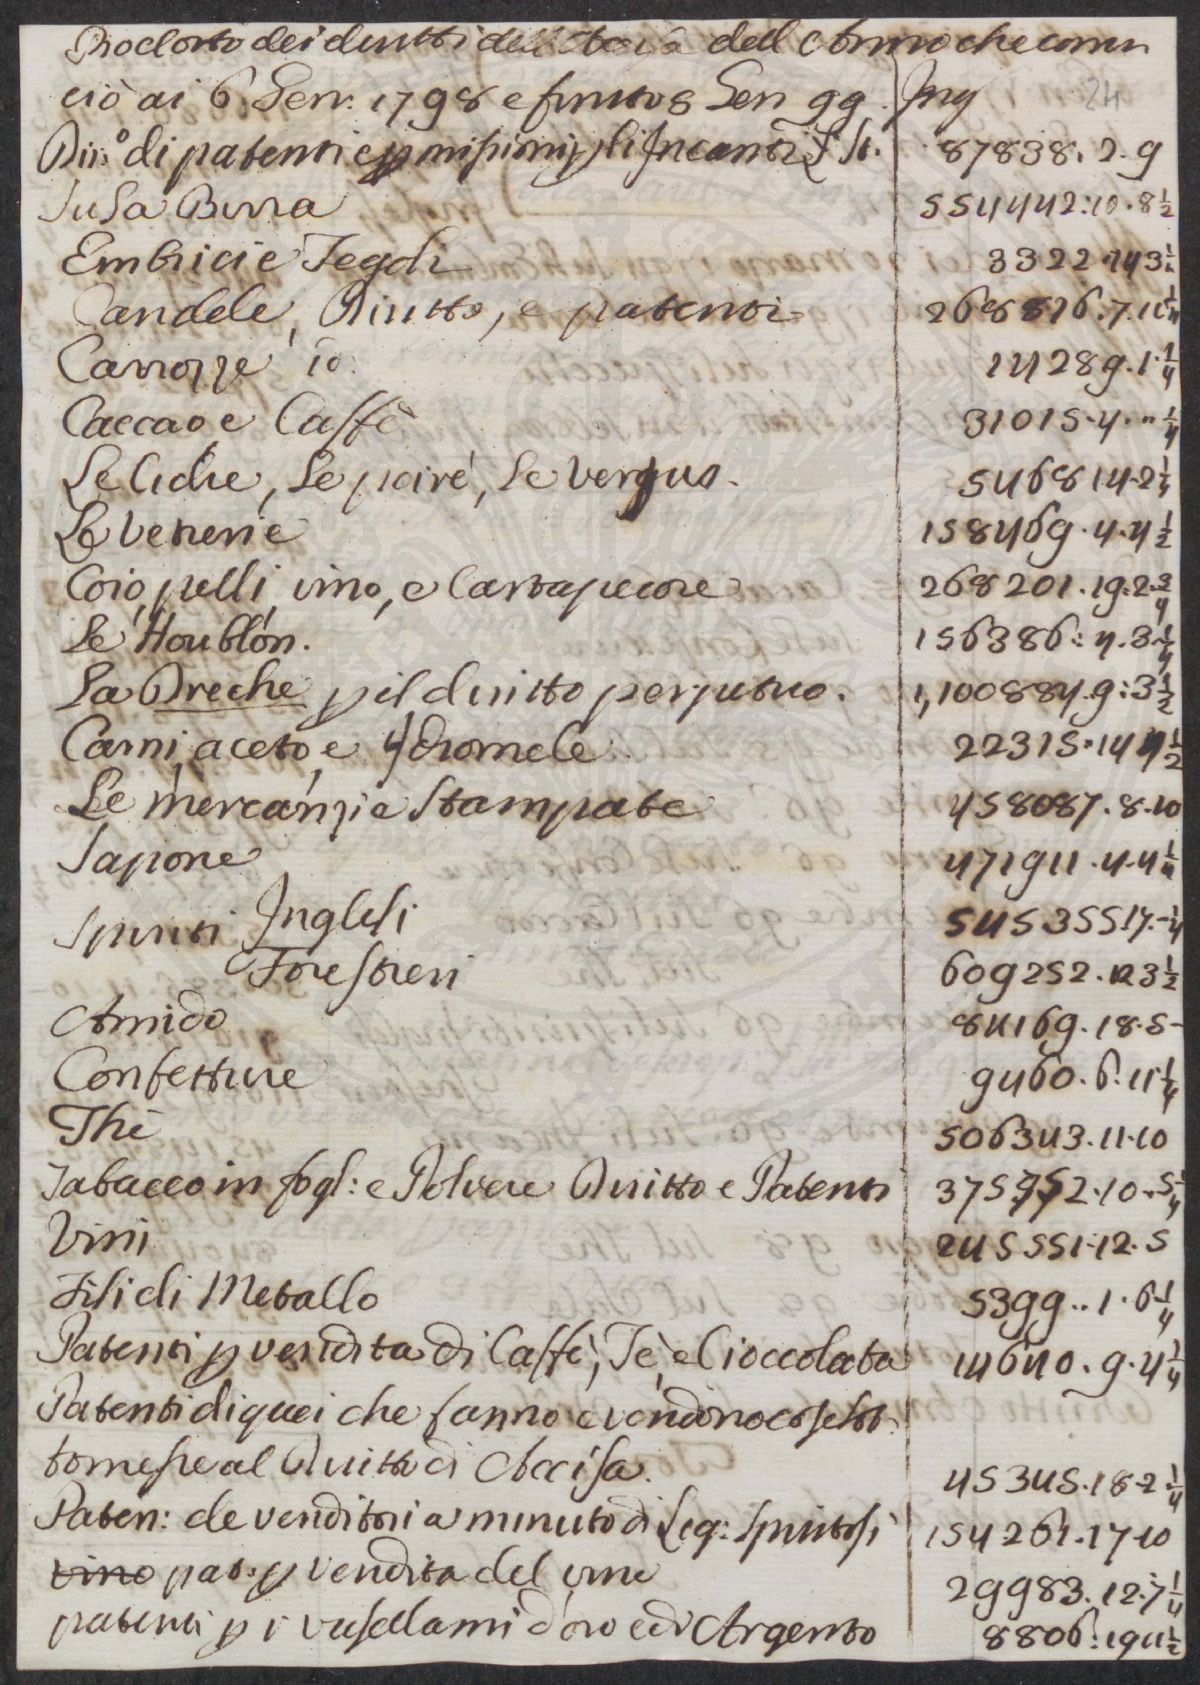 Prodotto dei diritti dell' Accisa dell' Anno che comin
ciò ai 6. Gen: 1798 e finito 5 Gen 99. Ing
24
Dir:o di patenti e p misioni p li Incanti L St. 87838. 2. 9
Sula Birra 554442:10.8 1/2
Embrici e Tegoli 3322.14 3 1/2
Candele, Diritto, e patenti 268816.7.11 1/4
Carrozze id. 14289.1. 1/4
Caccao e Caffè 31015.4.„ 1/4
Le Cidre, Le poiré, Le vergus. 5468 14.2 1/4
Le Vetrerie 158469.4.4 1/2
Coio, pelli, vino, e Cartapecore 268201.19.2 3/4
Le Houblon. 156386:4.3 1/4
La Dreche p il diritto perpetuo. 1,100884.9:3 1/2
Carni, aceto, e Idromele 22315.14 4 1/2
Le mercanzie Stampate 458087.8.10
Sapone 471911.4.4 1/4
Spiriti Inglesi 545355 17.- 1/4
Forestieri 609252.12 3 1/2
Amido 84169.18.5-
Confetture 9460.6.11 1/4
Thè 506343.11.10
Tabacco in fogl: e Polvere Diritto e Patenti 375952.10.5 1/4
Vini 245551.12.5
Fili di Metallo 5399..1.6 1/4
Patenti p vendita di Caffè, Tè, e Cioccolata 14640.9.4 1/4
Patenti di quei che fanno e vendono cose sot
tomesse al Diritto di Accisa. 45345.18.2 1/4
Paten: de venditori a minuto di Liq: Spiritosi 154261.17.10
vino pat: p vendita del vino 29983.12.7 1/4
patenti p i vasellami d'oro e d'Argento 8806:19 11 1/2